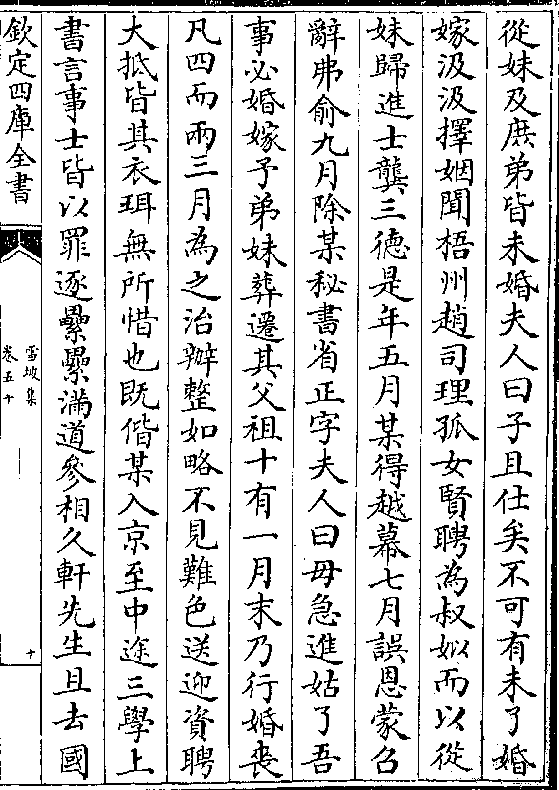 從妹及庶弟皆未婚夫人曰子且仕矣不可有未了婚
嫁汲汲擇姻聞梧州趙司理孤女賢聘為叔姒而以從
妹歸進士龔三德是年五月某得越幕七月誤恩蒙召
辭弗俞九月除某秘書省正字夫人曰毋急進姑了吾
事必婚嫁予弟妹葬遷其父祖十有一月末乃行婚喪
凡四而兩三月為之治辦整如略不見難色送迎資聘
大抵皆其衣珥無所惜也既偕某入京至中途三學上
書言事士皆以罪逐纍纍滿道參相久軒先生且去國
欽定四庫全書
雪坡集
卷五十
十